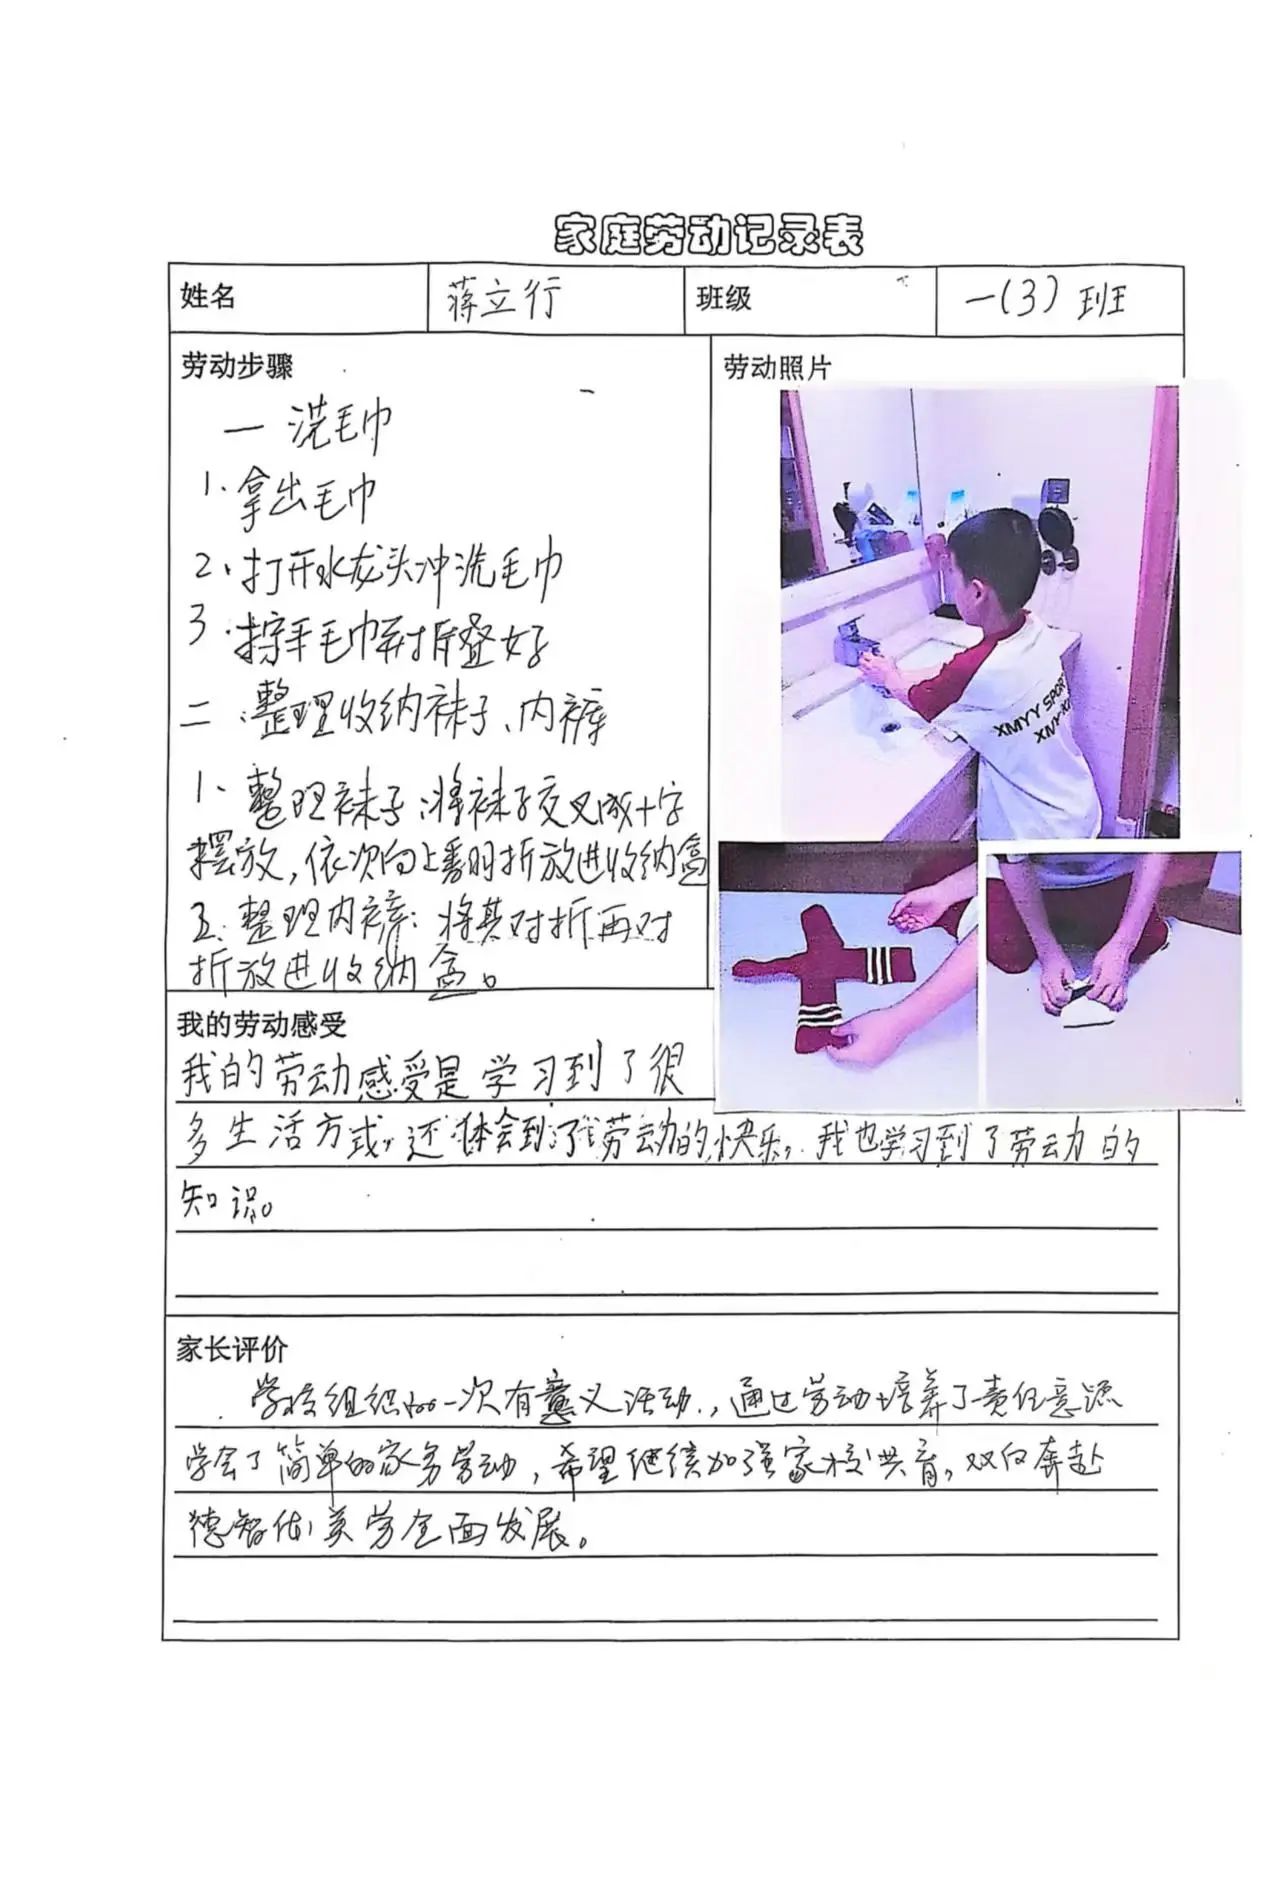 家庭劳动记录表
姓名 蒋立行 班级 一(3)班
劳动步骤
一 洗毛巾
1.拿出毛巾
2.打开水龙头冲洗毛巾
3.拧干毛巾并折叠好
二.整理收纳袜子、内裤
1.整理袜子:将袜子交叉成十字
摆放,依次向上叠对折放进收纳盒
2.整理内裤:将其对折再对
折放进收纳盒。
劳动照片
XMYY SPORT
XMYX
我的劳动感受
我的劳动感受是学习到了很
多生活方式,还体会到了劳动的快乐,我也学习到了劳动的
知识。
家长评价
学校组织的一次有意义活动,通过劳动培养了责任意识
学会了简单的家务劳动,希望继续加强家校共育,双向奔赴
德智体美劳全面发展。